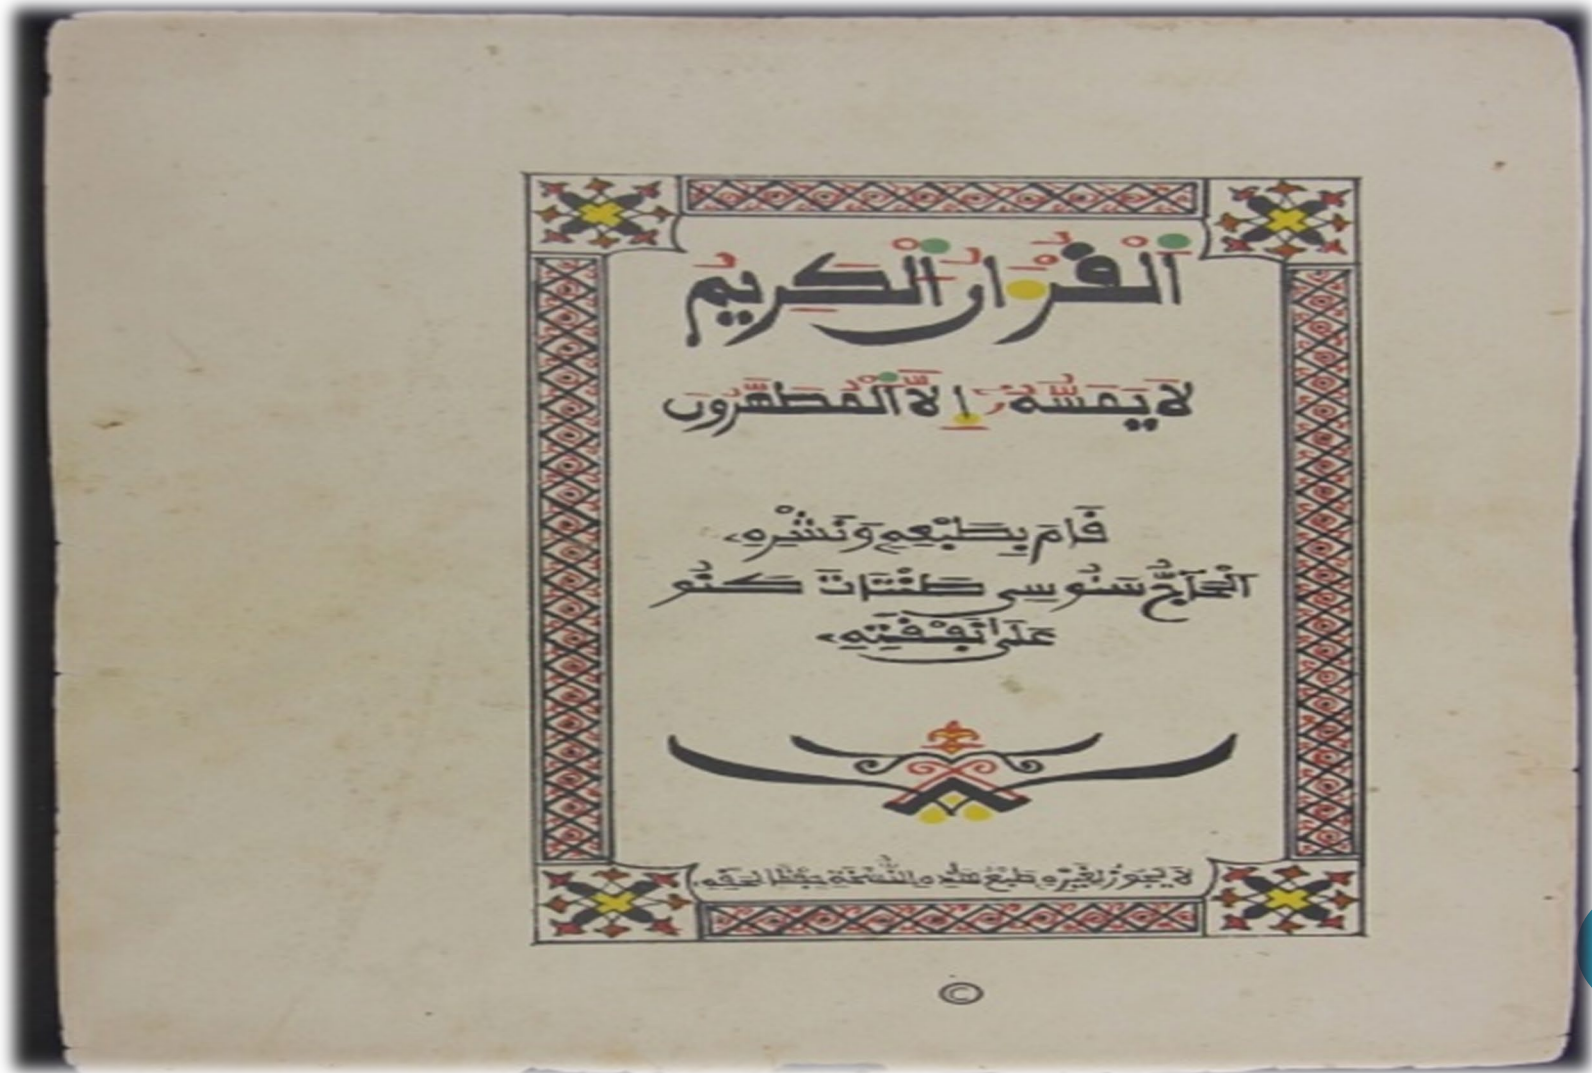 اَلْقُرْءَانُ اَلْكَرِيمُ
لَا يَمَسُّهُۥ إِلَّا اَلْمُطَهَّرُونَ
قَامَ بِطَبْعِهِ وَنَشْرِهِ
اَلْحَآجُّ سَنُوسِى طَنْتَاتَ كَنُو
عَلَى نَفَقَتِهِ
لَا يَجُوزُ لِغَيْرِهِ طَبْعُ هَذِهِ النُّسْخَةِ
©